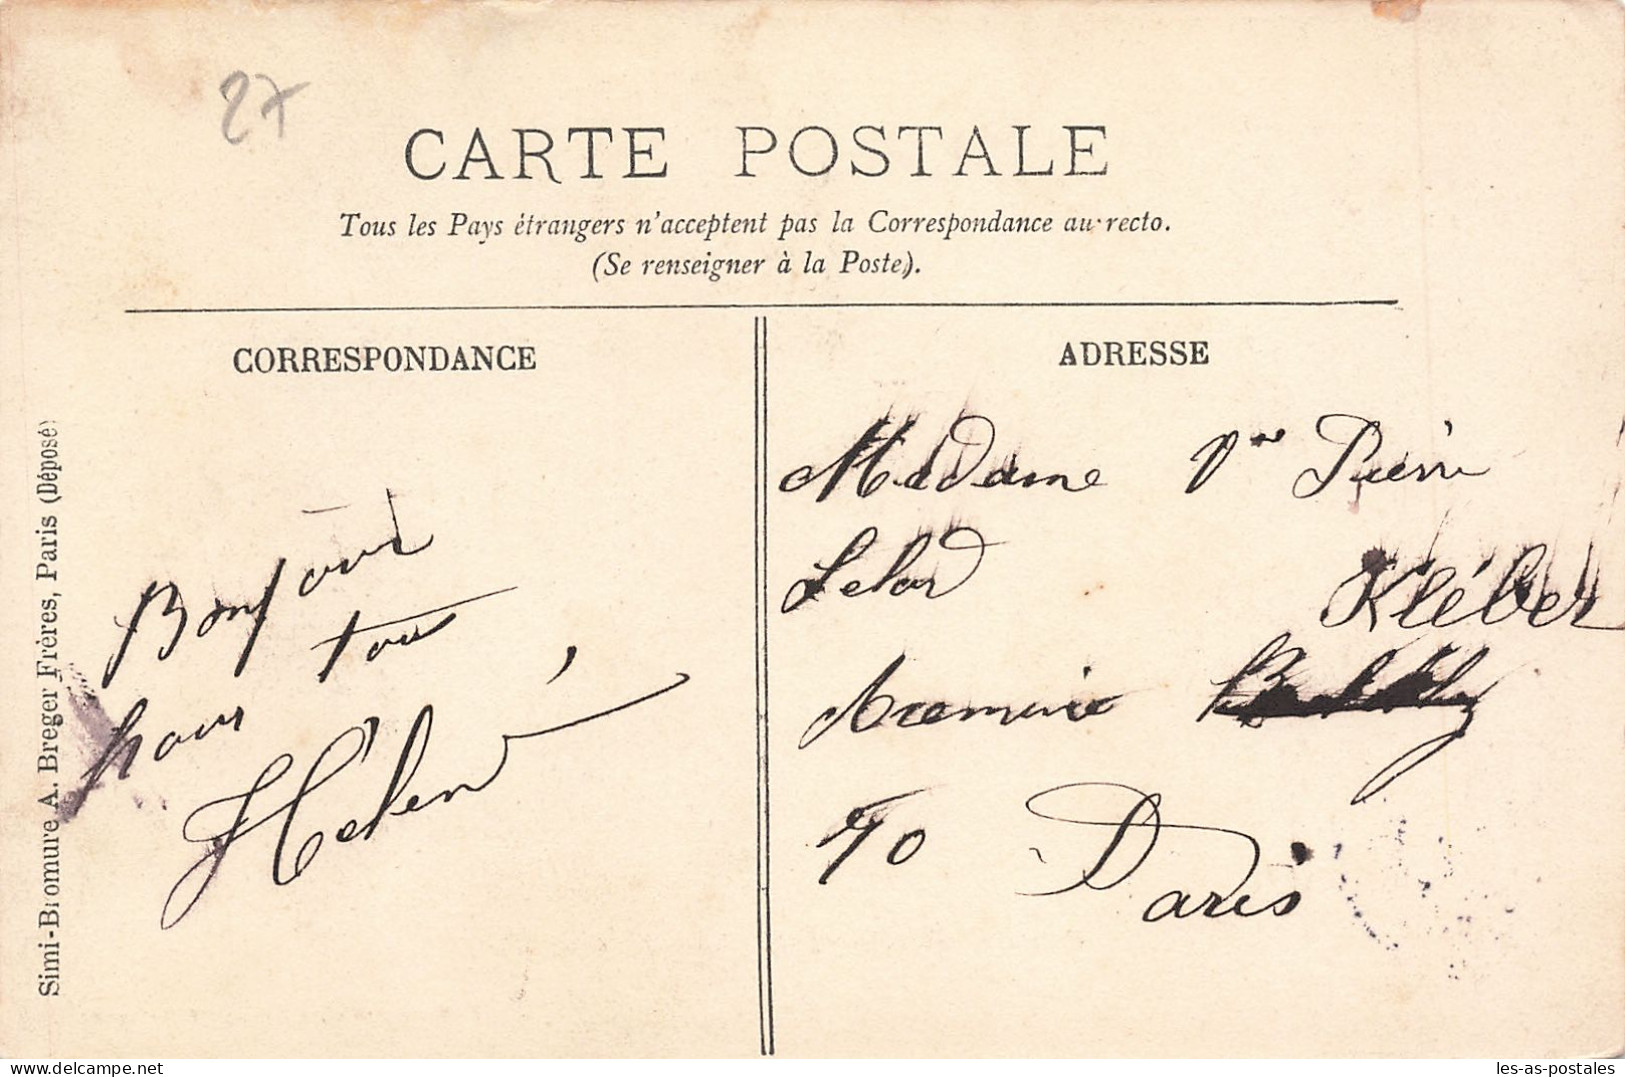 27
CARTE POSTALE
Tous les Pays étrangers n'acceptent pas la Correspondance au recto.
(Se renseigner à la Poste).
CORRESPONDANCE
Bonjour
pour tous
Hélène
Simi-Bromure A. Breger Frères, Paris (Déposé)
ADRESSE
Madame Vve Pierre
Kléber
Paris
delcampe.net
les-as-postales